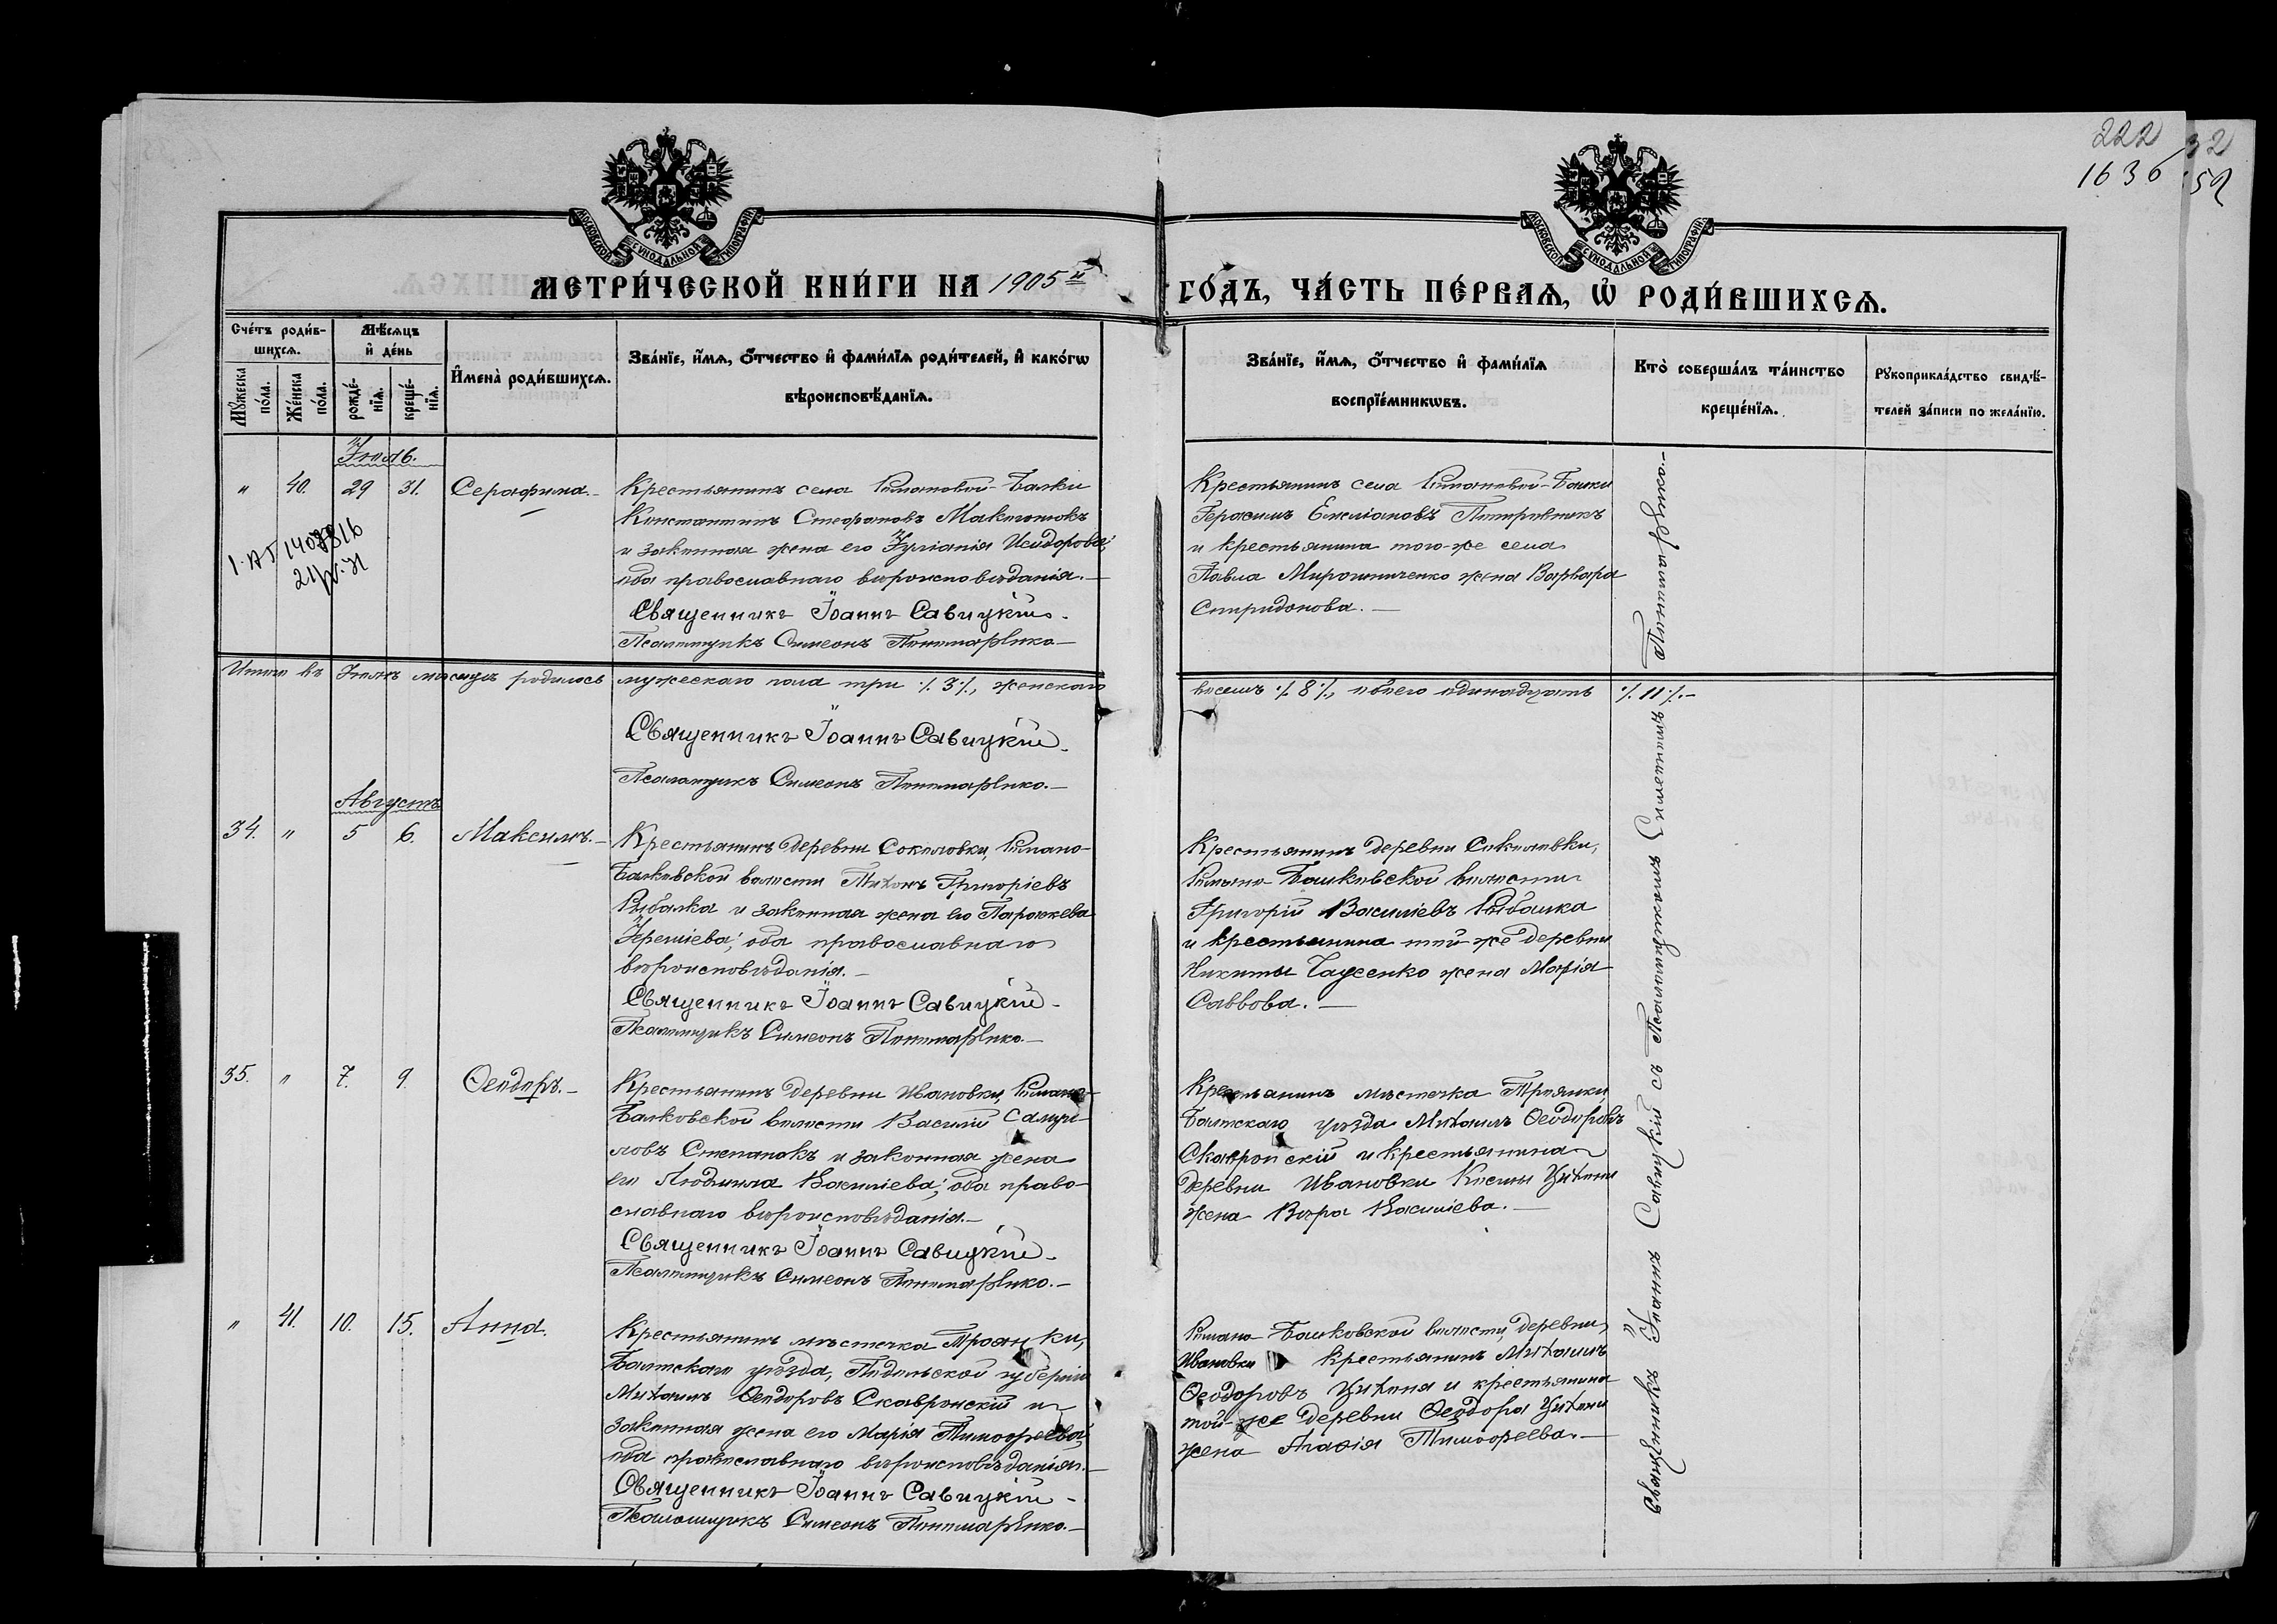 222
1636
32
59
МОСКОВСКОЙ СѴНОДАЛЬНОЙ ТИПОГРАФІИ
МОСКОВСКОЙ СѴНОДАЛЬНОЙ ТИПОГРАФІИ
МЕТРИ́ЧЕСКОЙ КНИ́ГИ НА 1905 й
ГО́ДЪ, ЧА́СТЬ ПЕ́РВАѦ, Ѡ҆ РОДИ́ВШИХСѦ.
Сче́тъ роди́в-
шихсѧ.
Мꙋ́жеска по́ла.
Же́нска по́ла.
Мѣ́сѧцъ
и҆ де́нь
рожде́-нїѧ.
креще́-нїѧ.
И҆мена̀ роди́вшихсѧ.
Зва́нїе, и҆́мѧ, о҆́тчество и҆ фами́лїѧ роди́телей, и҆ како́гѡ
вѣроисповѣ́данїѧ.
Зва́нїе, и҆́мѧ, о҆́тчество и҆ фами́лїѧ
воспрїе́мникѡвъ.
Кто̀ соверша́лъ та́инство
креще́нїѧ.
Рꙋкоприкла́дство свидѣ́-
телей за́писи по жела́нїю.
Іюль.
" 40. 29 31. Серафима.
Крестьянинъ села Романовой-Балки
Константинъ Стефановъ Макогонюкъ
и законная жена его Іуліанія Исидорова;
оба православнаго вѣроисповѣданія.
Священникъ Іоаннъ Савицкій.
Псаломщикъ Симеонъ Пономаренко
Крестьянинъ села Романовой-Балки
Герасимъ Емеліановъ
и крестьянина того-же села
Павла Мирошниченко жена Варвара
Спиридонова.
Итого въ Іюлѣ мѣсяцѣ родилось мужескаго пола три ./. 3 ./., женскаго
восемь ./. 8 ./., обоего одинадцать ./. 11 ./.
Священникъ Іоаннъ Савицкій.
Псаломщикъ Симеонъ Пономаренко.
Августъ
34. " 5 6. Максимъ.
Крестьянинъ деревни Соколовки, Романо-
Балковской волости Тихонъ Григоріевъ
Рыбалка и законная жена его Параскева
Іереміева; оба православнаго
вѣроисповѣданія.
Священникъ Іоаннъ Савицкій.
Псаломщикъ Симеонъ Пономаренко.
Крестьянинъ деревни Соколовки,
Романо-Балковской волости
Григорій Василіевъ Рыбалка
и крестьянина той-же деревни
Никиты Гаусенко жена Марія
Саввова.
35. " 7. 9. Ѳеодоръ.
Крестьянинъ деревни Ивановки, Романо-
Балковской волости Василій Самуи-
ловъ Степанокъ и законная жена
его Людмила Василіева; оба право-
славнаго вѣроисповѣданія.
Священникъ Іоаннъ Савицкій.
Псаломщикъ Симеонъ Пономаренко.
Крестьянинъ мѣстечка Троянки,
Балтскаго уѣзда Михаилъ Ѳеодоровъ
Скавронскій и крестьянина
деревни Ивановки Космы Цихони
жена Вѣра Василіева.
" 41. 10. 15. Анна.
Крестьянинъ мѣстечка Троянки,
Балтскаго уѣзда, Подольской губерніи
Михаилъ Ѳеодоровъ Скавронскій и
законная жена его Марія Тимоѳеева;
оба православнаго вѣроисповѣданія.
Священникъ Іоаннъ Савицкій
Псаломщикъ Симеонъ Пономаренко.
Романо-Балковской волости, деревни
Ивановки крестьянинъ Михаилъ
Ѳеодоровъ Цихоня и крестьянина
той-же деревни Ѳеодора Цихони
жена Агафія Тимоѳеева.
Священникъ Іоаннъ Савицкій съ Псаломщикомъ Симеономъ Пономаренко.